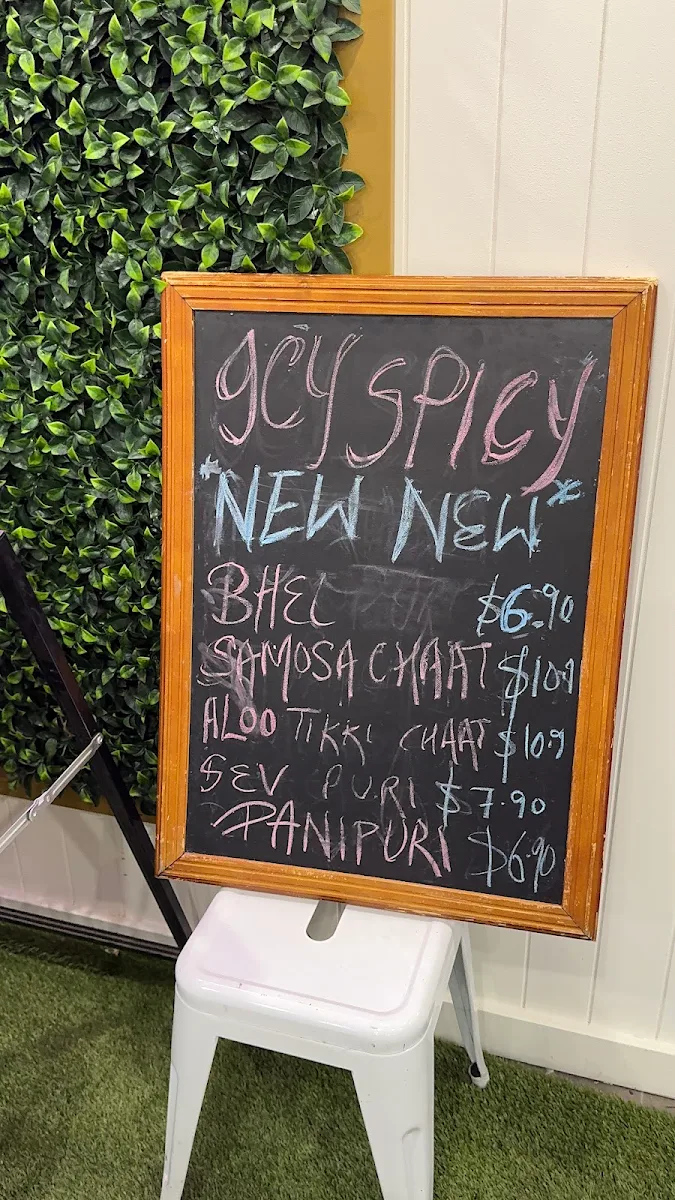 ICY SPICY
*NEW NEW*
BHEL $6.90
SAMOSA CHAAT $10.9
ALOO TIKKI CHAAT $10.9
SEV PURI $7.90
PANIPURI $6.90